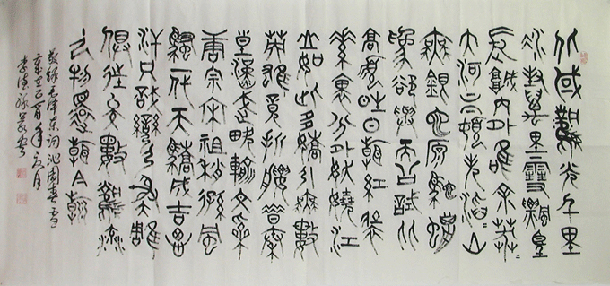 北國風光千里
冰封萬里雪飄望
長城內外唯余莽莽
大河上下頓失滔滔山
舞銀蛇原馳蠟
象欲與天公試比
高須晴日看紅裝
素裹分外妖嬈江
山如此多嬌引無數
英雄競折腰惜秦
皇漢武略輸文采
唐宗宋祖稍遜風
騷一代天驕成吉思
汗只識彎弓射大雕
俱往矣數風流
人物還看今朝
敬録毛澤東詞沁園春雪
年元月
李